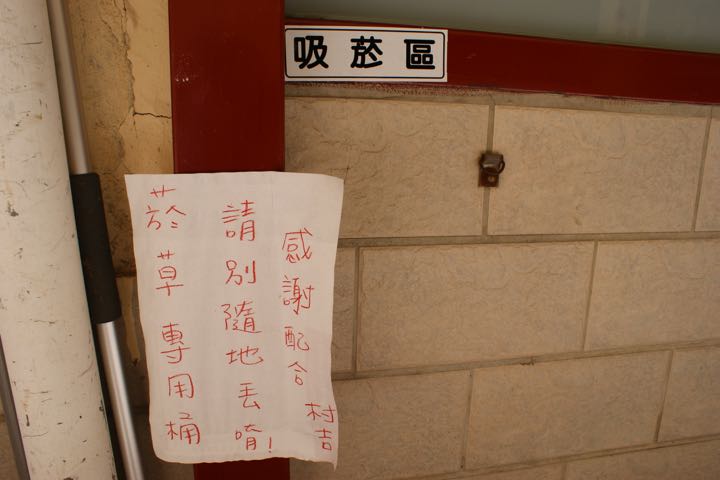 吸菸區
菸草專用桶
請別隨地丟唷!
感謝配合
村吉